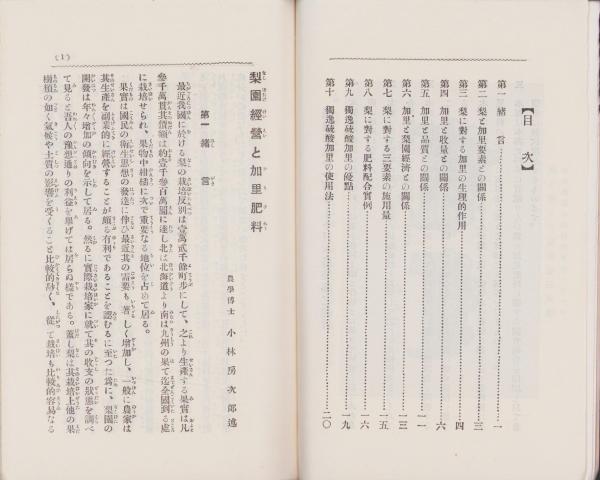 【目次】
第一 緒言……一
第二 梨と加里要素との關係……三
第三 梨に對する加里の生理的作用……四
第四 加里と收量との關係……六
第五 加里と品質との關係……一一
第六 加里と梨園經濟との關係……一三
第七 梨に對する三要素の施用量……一五
第八 梨に對する肥料配合實例……一六
第九 獨逸硫酸加里の優點……一九
第十 獨逸硫酸加里の使用法……二〇
(1)
梨園經營と加里肥料
農學博士 小林房次郎述
第一 緒言
最近我國に於ける梨の栽培反別は壹萬貳千餘町步にして、之より生產する果實は凡
參千萬貫其價額は約壹千參百萬圓に達し北は北海道より南は九州の果て迄全國到る處
に栽培せられ、果物中柑橘に次で重要なる地位を占めて居る。
果實は國民の衛生思想の發達に伴ひ最近其の需要も著しく增加し、一般に農家は
其生產を副業的に經營することが頗る有利であることを認むるに至つた爲に、梨園の
開發は年々增加の傾向を示して居る。然るに實際栽培家に就て其の收支の狀態を調べ
て見ると吾人の豫想通りの利益を擧げては居らぬ樣である。蓋し梨は其栽培上他の果
樹類の如く氣候や土質の影響を受くること比較的尠く、從て栽培も比較的容易なる